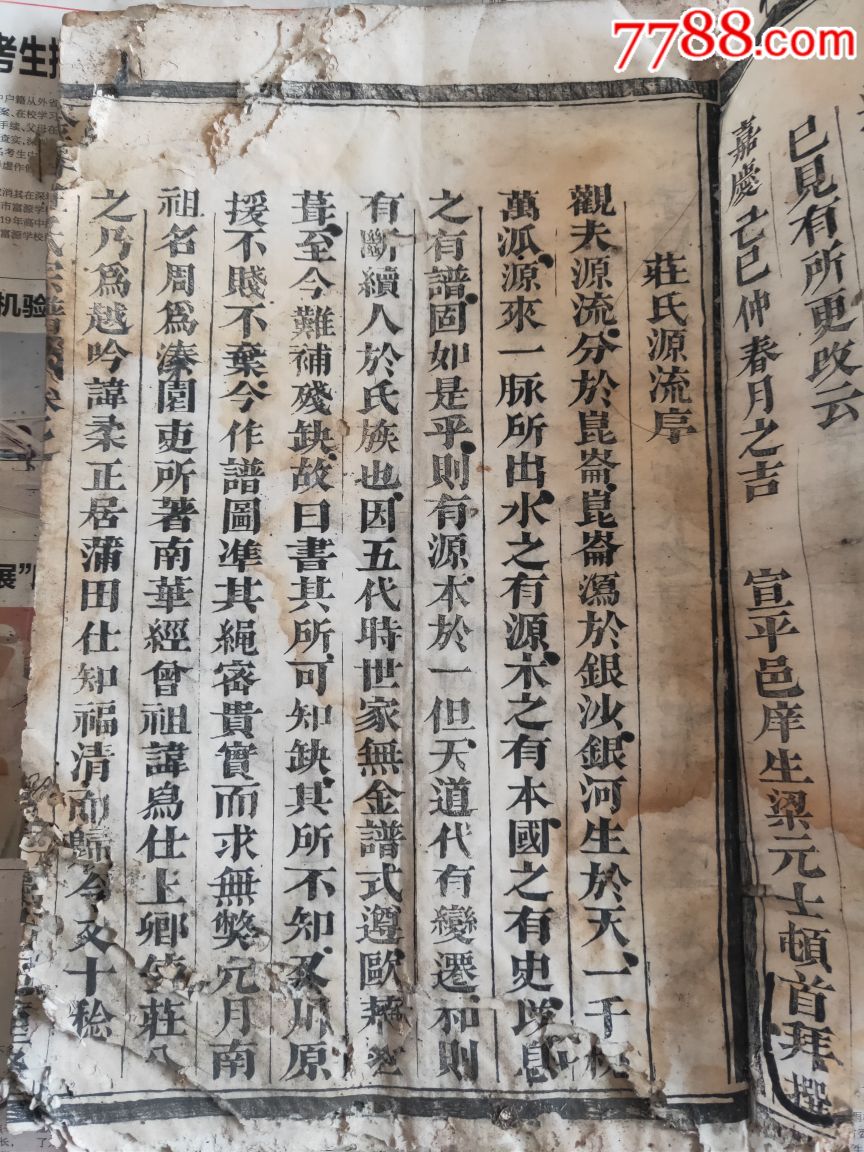 7788.com
已見有所更改云
嘉慶己巳仲春月之吉 宣平邑庠生梁元士頓首拜撰
莊氏源流序
觀夫源流分於崑崙崑崙瀉於銀沙銀河生於天一千枝
萬派源來一脉所出水之有源木之有本國之有史
之有譜固如是乎則有源本於一但天道代有變遷和則
有斷續人於氏族也因五代時世家無金譜式遵歐蘇
葺至今難補殘缺故曰書其所可知缺其所不知又川原
援不賤不棄今作譜圖凖其繩審貴實而求無獘元月南
祖名周爲漆園吏所著南華經曾祖諱舃仕上卿 莊
之乃爲越吟諱柔正居蒲田仕知福清而歸今文十
考生
机验
展"